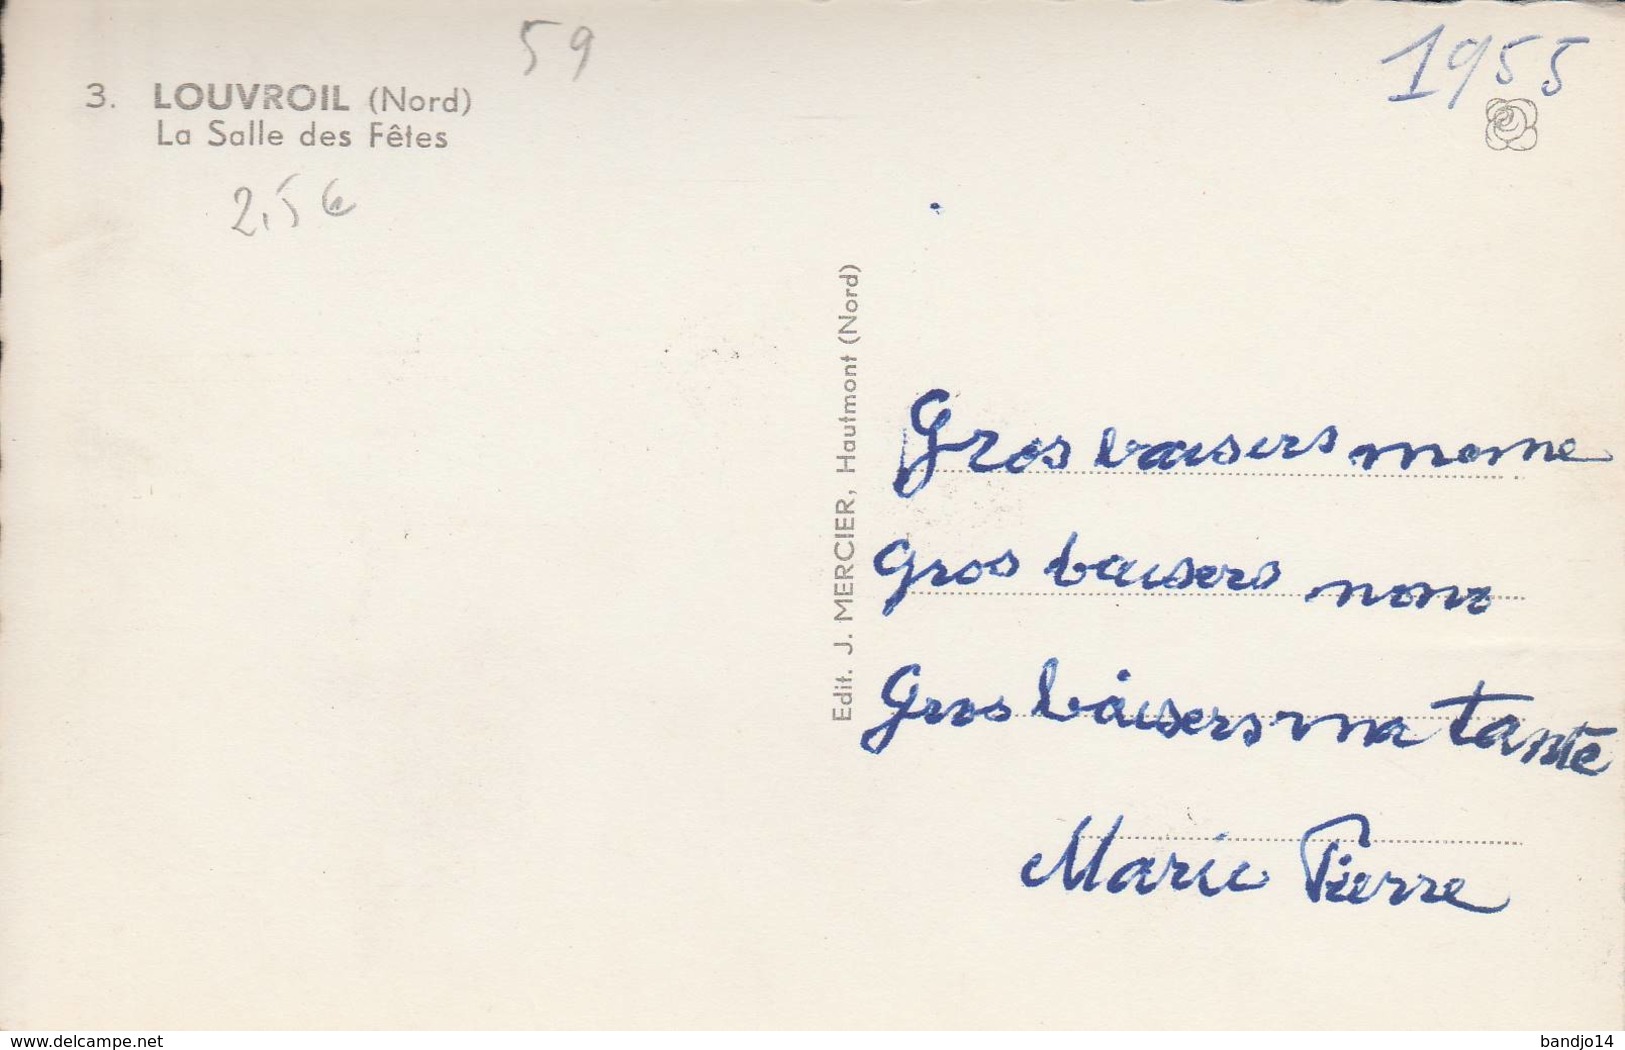 59
1955
3. LOUVROIL (Nord)
La Salle des Fêtes
2,5€
Edit. J. MERCIER, Hautmont (Nord)
Gros baisers meme
Gros baisers nono
Gros baisers ma tante
Marie Pierre
delcampe.net
bandjo14